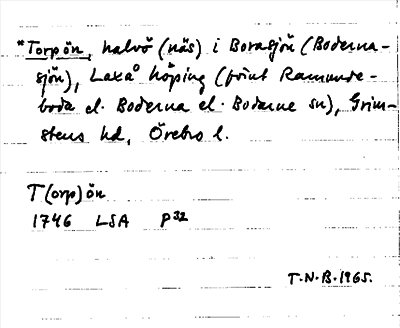 *Torpön, halvö (näs) i Borasjön (Boderna-
sjön), Laxå köping (förut Ramunde-
boda el. Boderna el. Bodarne sn), Grim-
stens hd, Örebro l.
T(orp)ön
1746 LSA P32
T.N.B. 1965.